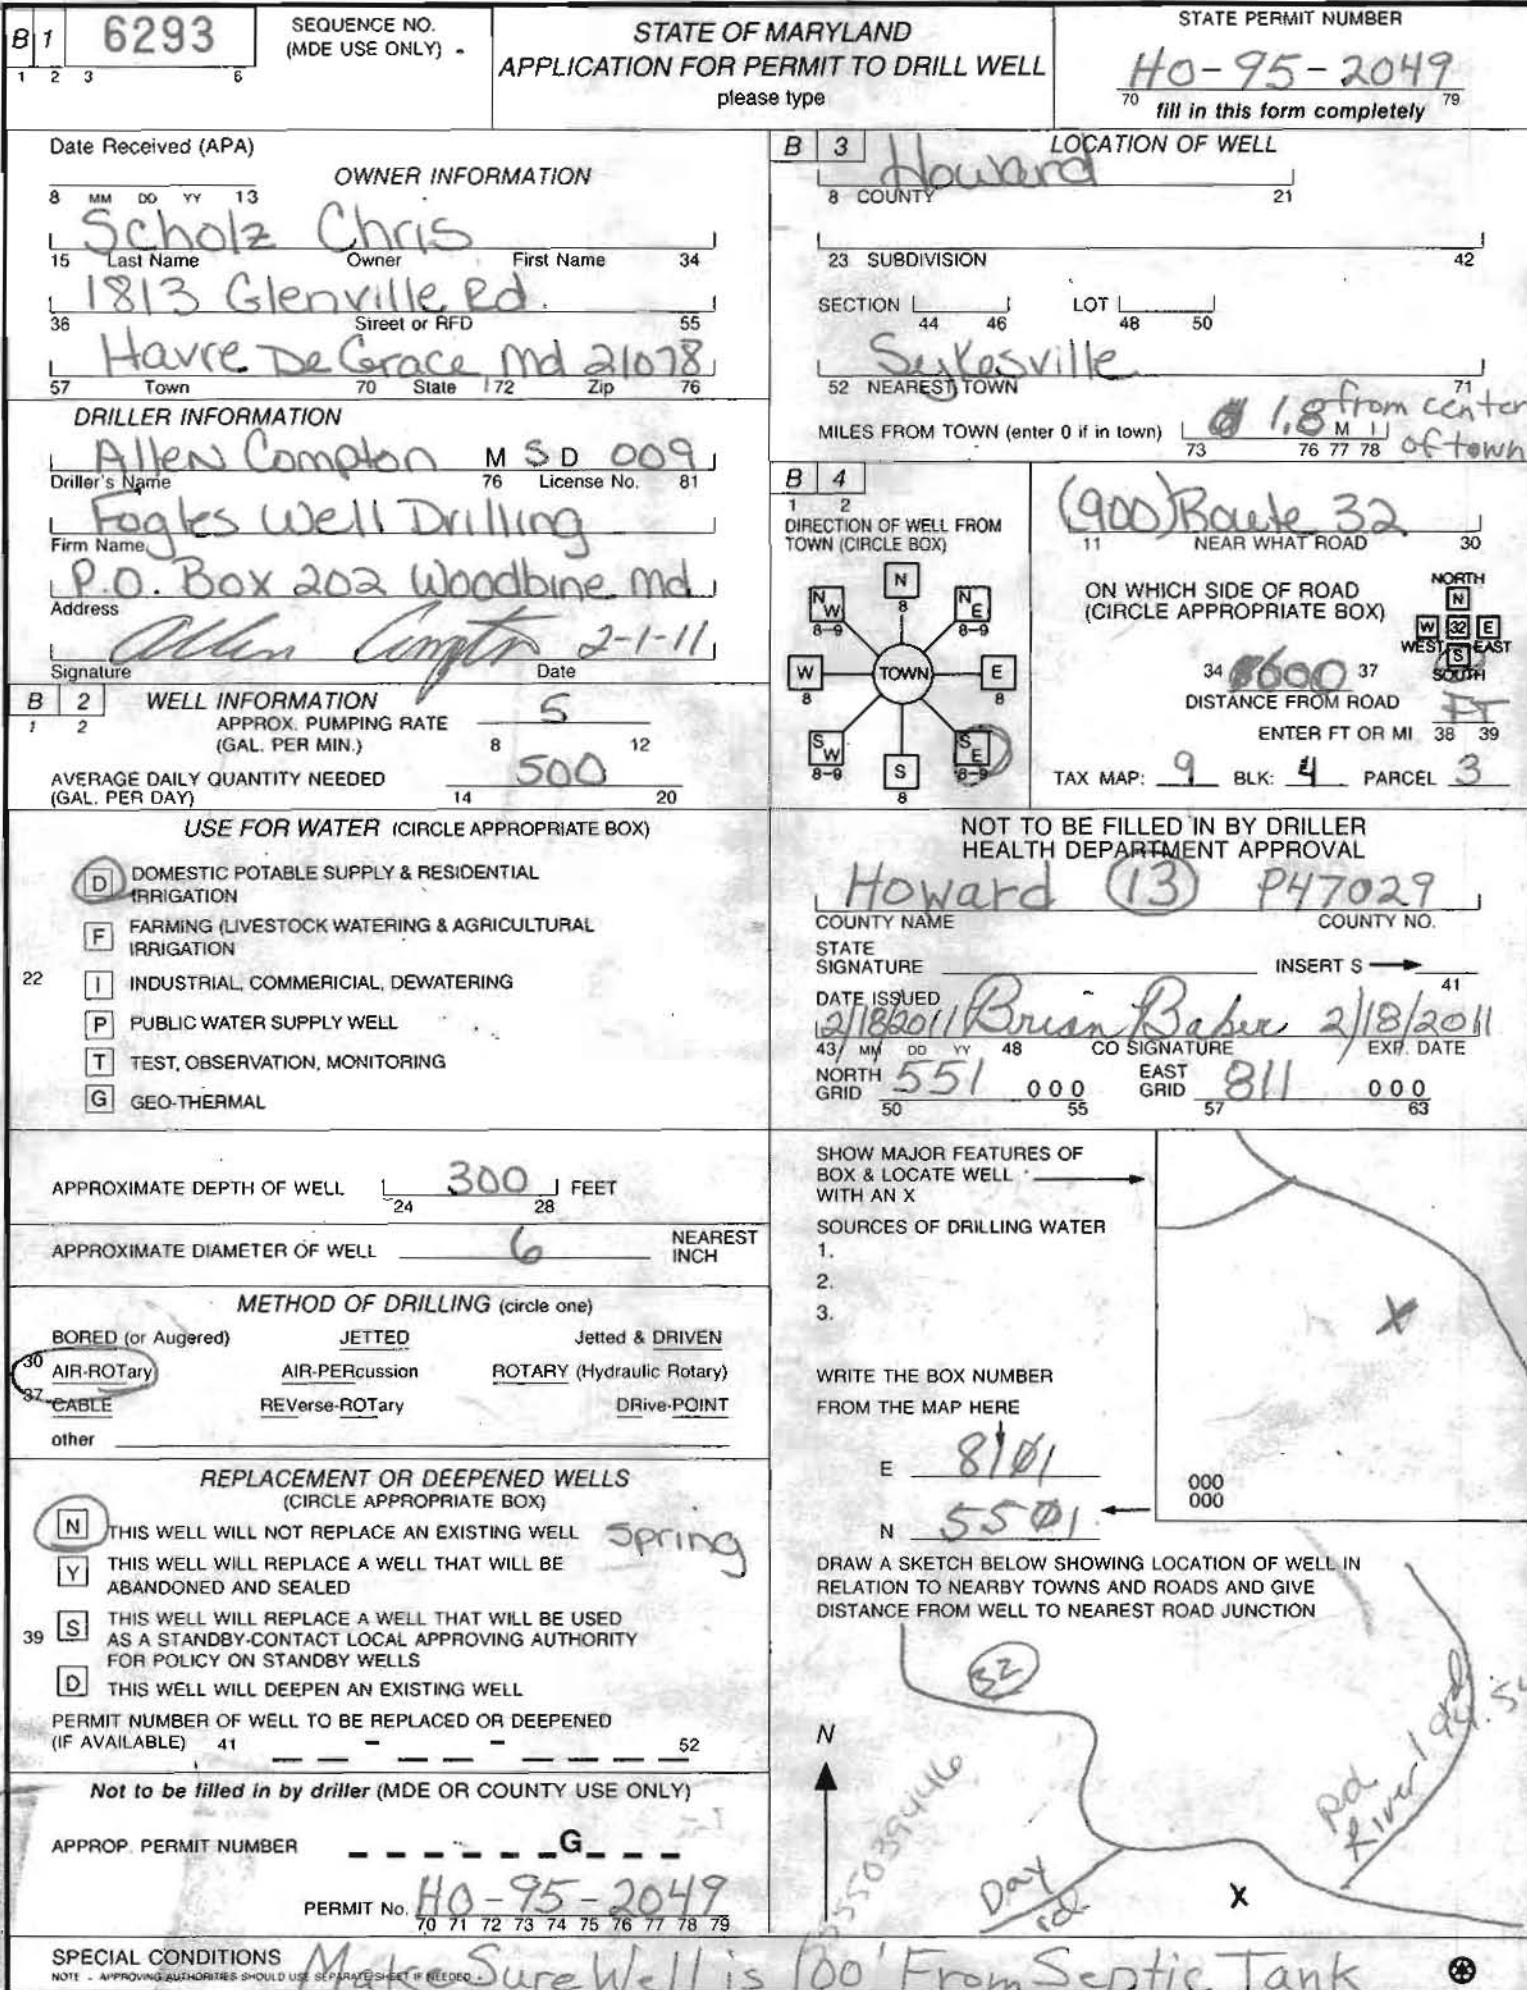 B 1 6293
1 2 3 6
SEQUENCE NO.
(MDE USE ONLY)
STATE OF MARYLAND
APPLICATION FOR PERMIT TO DRILL WELL
please type
STATE PERMIT NUMBER
HO-95-2049
70 fill in this form completely 79
Date Received (APA)
OWNER INFORMATION
8 MM DD YY 13
Scholz Chris
15 Last Name Owner First Name 34
1813 Glenville Rd.
36 Street or RFD 55
Havre De Grace Md 21078
57 Town 70 State 72 Zip 76
DRILLER INFORMATION
Allen Compton M S D 009
Driller's Name 76 License No. 81
Fogles Well Drilling
Firm Name
P.O. Box 202 Woodbine Md
Address
Allen Compton 2-1-11
Signature Date
B 2 WELL INFORMATION
1 2 APPROX. PUMPING RATE 5
(GAL. PER MIN.) 8 12
AVERAGE DAILY QUANTITY NEEDED 500
(GAL. PER DAY) 14 20
USE FOR WATER (CIRCLE APPROPRIATE BOX)
D DOMESTIC POTABLE SUPPLY & RESIDENTIAL
IRRIGATION
F FARMING (LIVESTOCK WATERING & AGRICULTURAL
IRRIGATION
22 I INDUSTRIAL, COMMERICIAL, DEWATERING
P PUBLIC WATER SUPPLY WELL
T TEST, OBSERVATION, MONITORING
G GEO-THERMAL
APPROXIMATE DEPTH OF WELL 300 FEET
24 28
APPROXIMATE DIAMETER OF WELL 6 NEAREST
INCH
METHOD OF DRILLING (circle one)
BORED (or Augered) JETTED Jetted & DRIVEN
30 AIR-ROTary AIR-PERcussion ROTARY (Hydraulic Rotary)
37 CABLE REVerse-ROTary DRive-POINT
other
REPLACEMENT OR DEEPENED WELLS
(CIRCLE APPROPRIATE BOX)
N THIS WELL WILL NOT REPLACE AN EXISTING WELL Spring
Y THIS WELL WILL REPLACE A WELL THAT WILL BE
ABANDONED AND SEALED
39 S THIS WELL WILL REPLACE A WELL THAT WILL BE USED
AS A STANDBY-CONTACT LOCAL APPROVING AUTHORITY
FOR POLICY ON STANDBY WELLS
D THIS WELL WILL DEEPEN AN EXISTING WELL
PERMIT NUMBER OF WELL TO BE REPLACED OR DEEPENED
(IF AVAILABLE) 41 - - 52
Not to be filled in by driller (MDE OR COUNTY USE ONLY)
APPROP. PERMIT NUMBER G
PERMIT No. HO-95-2049
70 71 72 73 74 75 76 77 78 79
B 3 LOCATION OF WELL
Howard
8 COUNTY 21
23 SUBDIVISION 42
SECTION LOT
44 46 48 50
Sykesville
52 NEAREST TOWN 71
MILES FROM TOWN (enter 0 if in town) 1.8 M I from center of town
73 76 77 78
B 4
1 2
DIRECTION OF WELL FROM
TOWN (CIRCLE BOX)
N
8
N W N E
8-9 8-9
W TOWN E
8 8
S W S S E
8-9 8 8-9
(900) Route 32
11 NEAR WHAT ROAD 30
ON WHICH SIDE OF ROAD
(CIRCLE APPROPRIATE BOX)
NORTH
N
W 32 E
WEST S EAST
SOUTH
34 600 37
DISTANCE FROM ROAD
ENTER FT OR MI FT
38 39
TAX MAP: 9 BLK: 4 PARCEL 3
NOT TO BE FILLED IN BY DRILLER
HEALTH DEPARTMENT APPROVAL
Howard (13) P47029
COUNTY NAME COUNTY NO.
STATE
SIGNATURE INSERT S
41
DATE ISSUED
2/18/2011 Brian Baker 2/18/2011
43 MM DD YY 48 CO SIGNATURE EXP. DATE
NORTH GRID 551 000 EAST GRID 811 000
50 55 57 63
SHOW MAJOR FEATURES OF
BOX & LOCATE WELL
WITH AN X
SOURCES OF DRILLING WATER
1.
2.
3.
X
WRITE THE BOX NUMBER
FROM THE MAP HERE
E 8101
N 5501
000
000
DRAW A SKETCH BELOW SHOWING LOCATION OF WELL IN
RELATION TO NEARBY TOWNS AND ROADS AND GIVE
DISTANCE FROM WELL TO NEAREST ROAD JUNCTION
32
N
Day rd.
River rd
X
SPECIAL CONDITIONS Make Sure Well is 100' From Septic Tank
NOTE - APPROVING AUTHORITIES SHOULD USE SEPARATE SHEET IF NEEDED